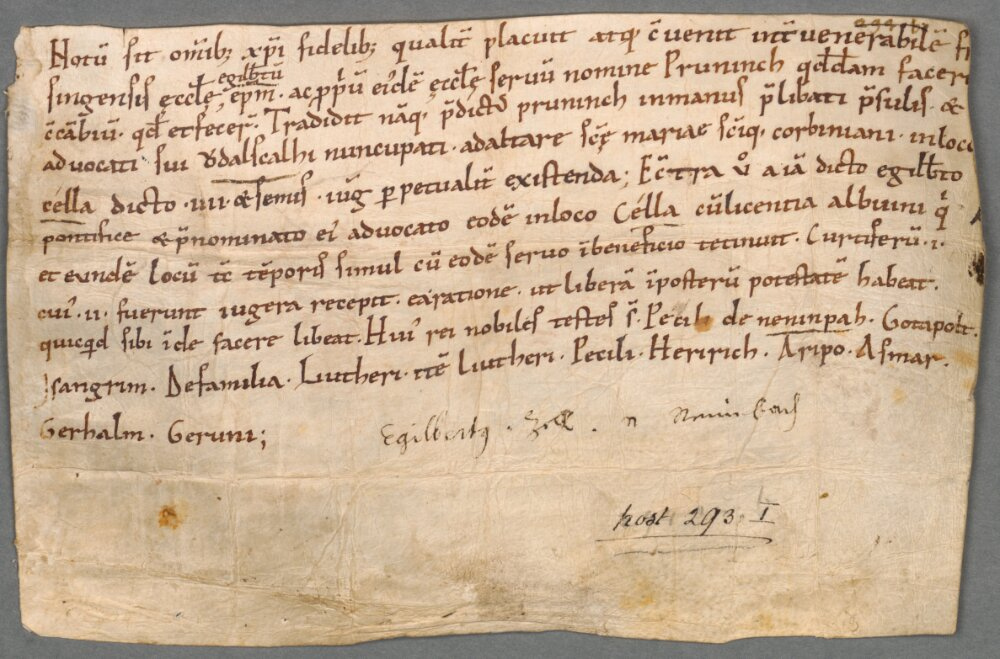 Notū sit om̄ib; xp̄i fidelib; qualit̄ placuit atq; c̄venit int̄ venerabilē fri
singensis ęccłę egilbtū ep̄m · ac p̱p̄ū ei'dē ęccłę servū nomine Pruninch qđdam facere
c̄cābiū · qđ et fecer̄. Tradidit nāq; p̄dict' pruninch in manus p̄libati p̄sulis · &
advocati sui ŏdalscalhi nuncupati · ad altare scę mariae sciq; corbiniani · in loco
cella dicto · iii · & semis · iuḡ ꝑpetualit̄ existenda; Ec̄tra v̊ a iā dicto egilbto
pontifice & p̄nominato ei' advocato eodē in loco Cella cū licentia albuuini q'
et eundē locū tc̄ tēporis simul cū eodē servo ī beneficio tetinuit · Curtiferū · i ·
cui' · ii · fuerunt iugera recepit · ea ratione · ut liberā ī posterū potestatē habeat ·
quicq̇d sibi īde facere libeat. Hui' rei nobiles testes s̄ · Pecili de neninpah · Gotapolt ·
Isangrim · De familia · Liutheri · itē Liutheri · Pecili · Heririch · Aripo · Asmar ·
Gerhalm · Geruni;
Egilbertus · Zell · n
host 293 I